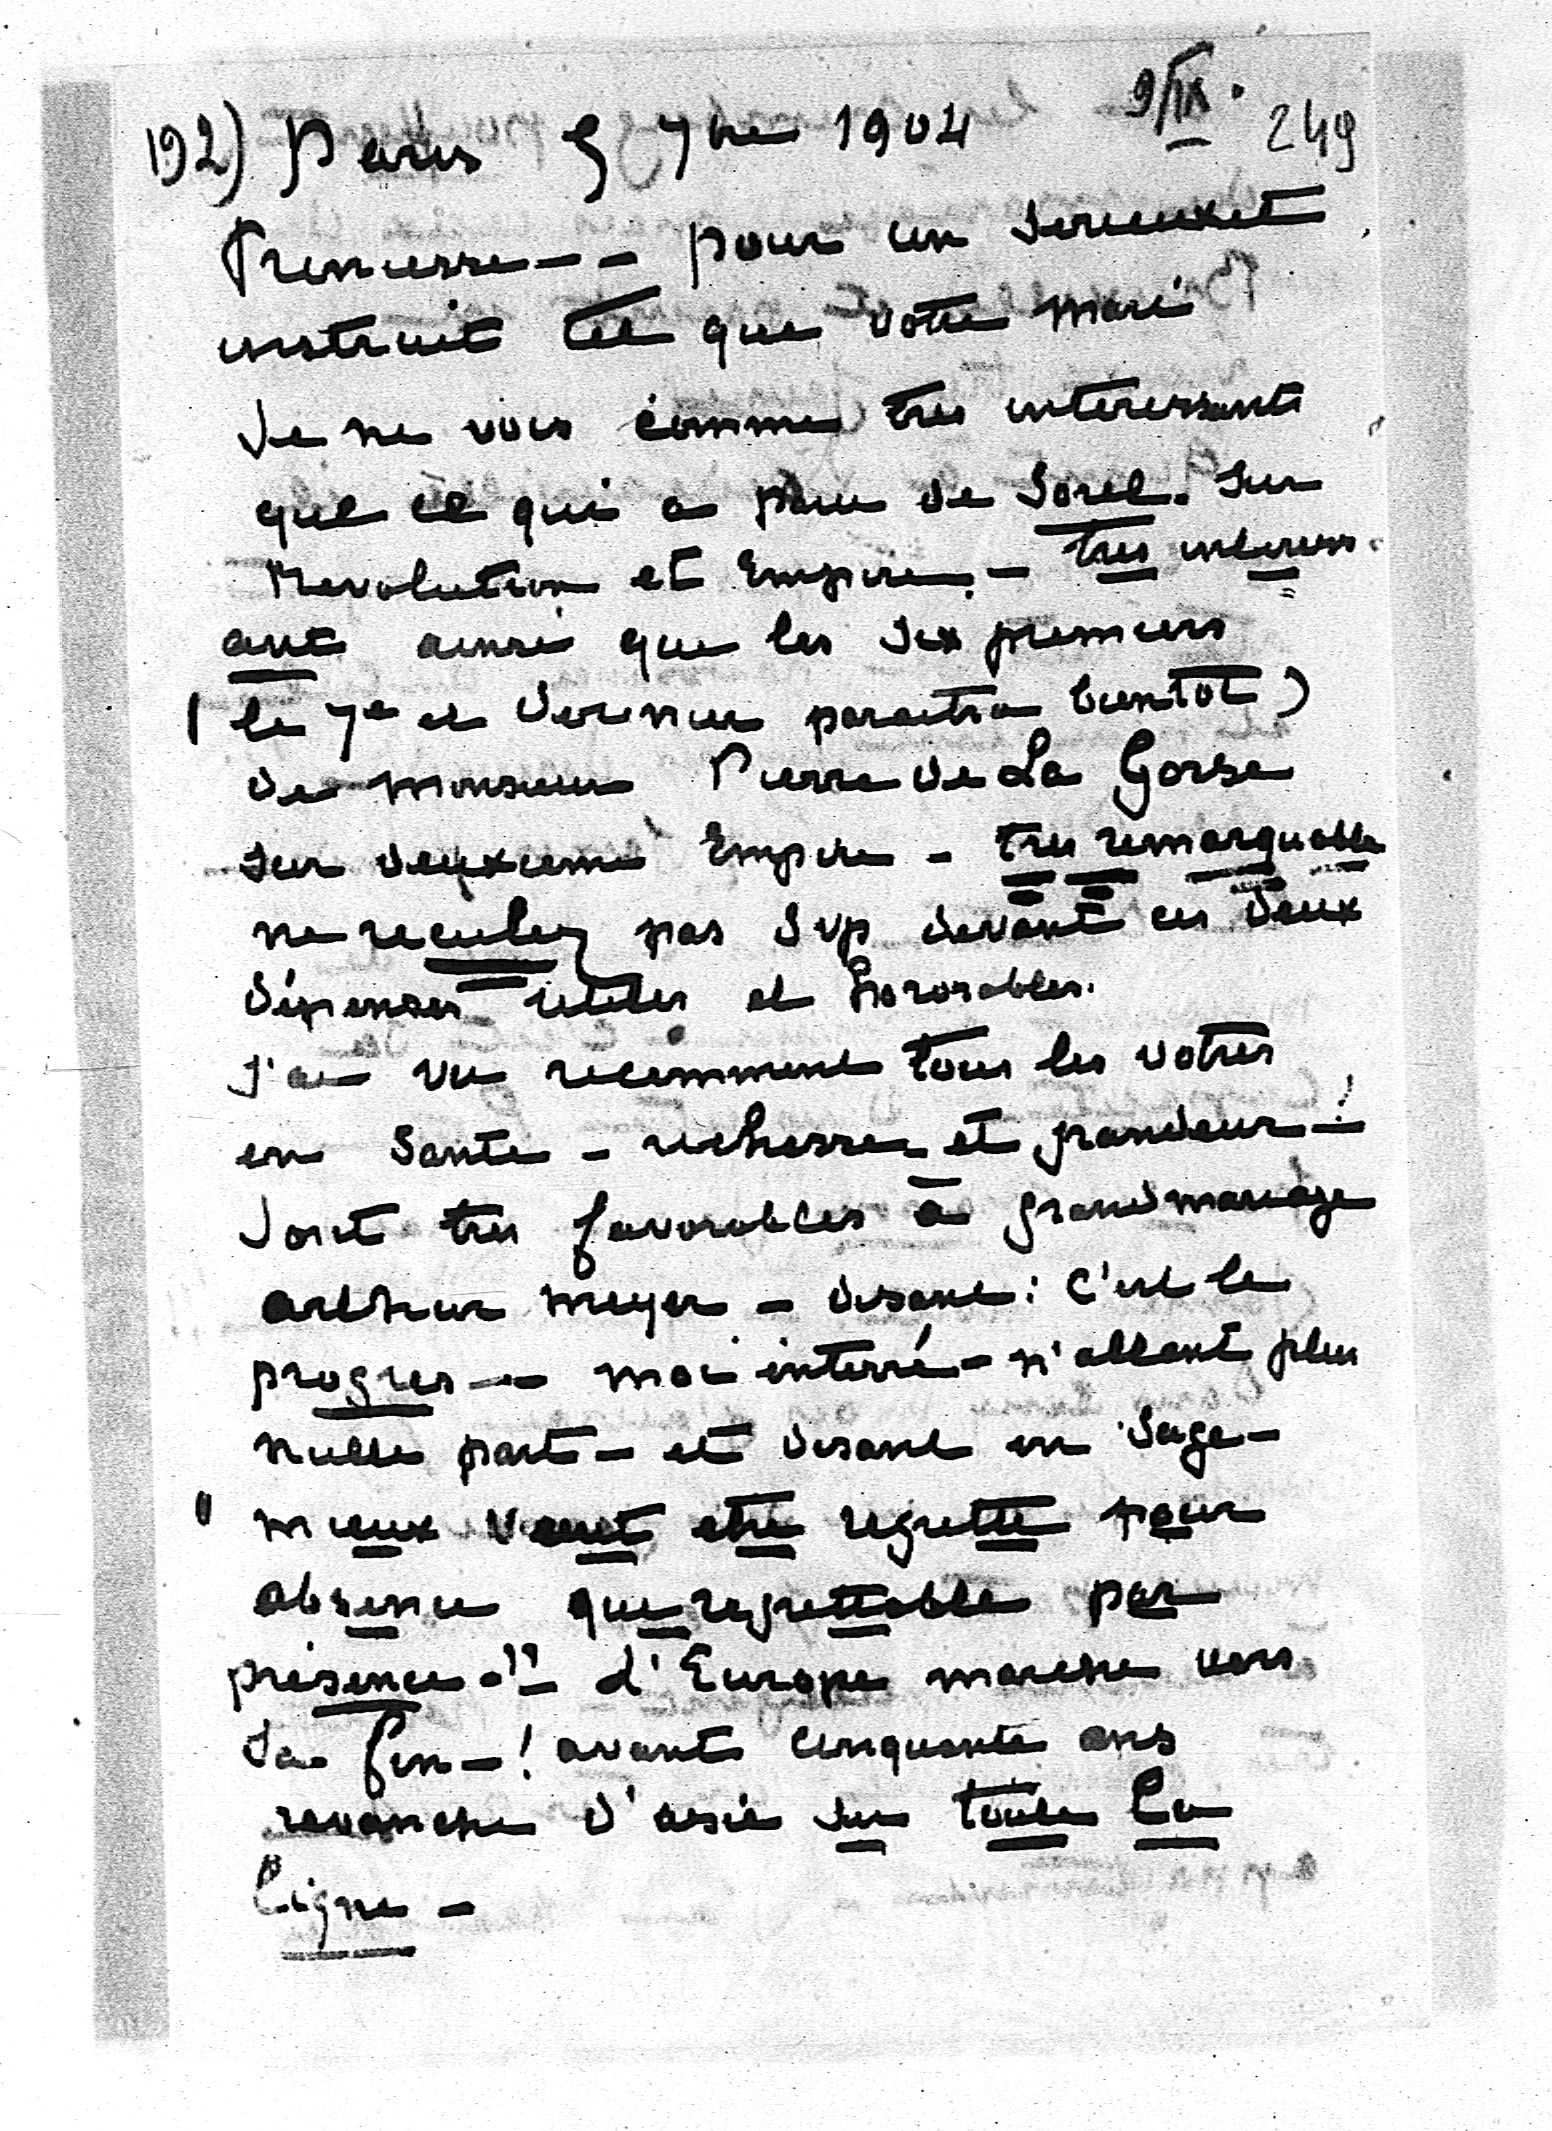 192) Paris 5 7bre 1904 9/IX. 249
Princesse -- pour un serieux et
instruit tel que votre mari
Je ne vois comme tres interessant
que ce qui a paru de Sorel. Sur
Revolution et Empire. - tres interess
ant ainsi que les six premiers
(le 7e et dernier paraitra bientot)
de monsieur Pierre de La Gorse
sur deuxieme Empire - tres remarquable
ne reculez pas svp devant ces deux
dépenses utiles et honorables.
J'ai vu recemment tous les votres
en Santé - richesse et grandeur - !
Sont tres favorables à grand mariage
arthur meyer - disant : C'est le
progres -- moi interré - n'allant plus
nulle part - et disant en sage -
" mieux vaut etre regretté pour
absence que regrettable par
présence -" - L'Europe marche vers
sa fin - ! avant cinquante ans
revanche d'asie sur toute la
Ligne -